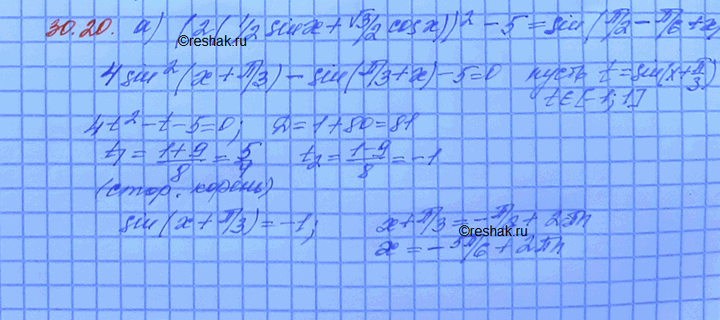 30.20. а) (2(1/2 sin x + √3/2 cos x))² - 5 = sin(π/2 - π/6 + x)
©reshak.ru
4 sin²(x + π/3) - sin(π/3 + x) - 5 = 0 пусть t = sin(x + π/3)
t ∈ [-1; 1]
4t² - t - 5 = 0; D = 1 + 80 = 81
t₁ = (1+9)/8 = 5/4 t₂ = (1-9)/8 = -1
(стор. корень)
sin(x + π/3) = -1; x + π/3 = -π/2 + 2πn
©reshak.ru
x = -5π/6 + 2πn